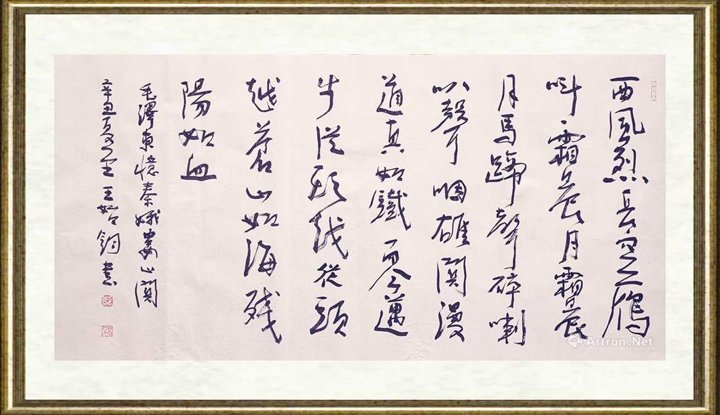 西風烈長空雁
叫霜晨月霜晨
月馬蹄聲碎喇
叭聲咽雄關漫
道真如鐵而今邁
步從頭越從頭
越蒼山如海殘
陽如血
毛澤東憶秦娥婁山關
辛丑夏至王鈞書
Artron.Net